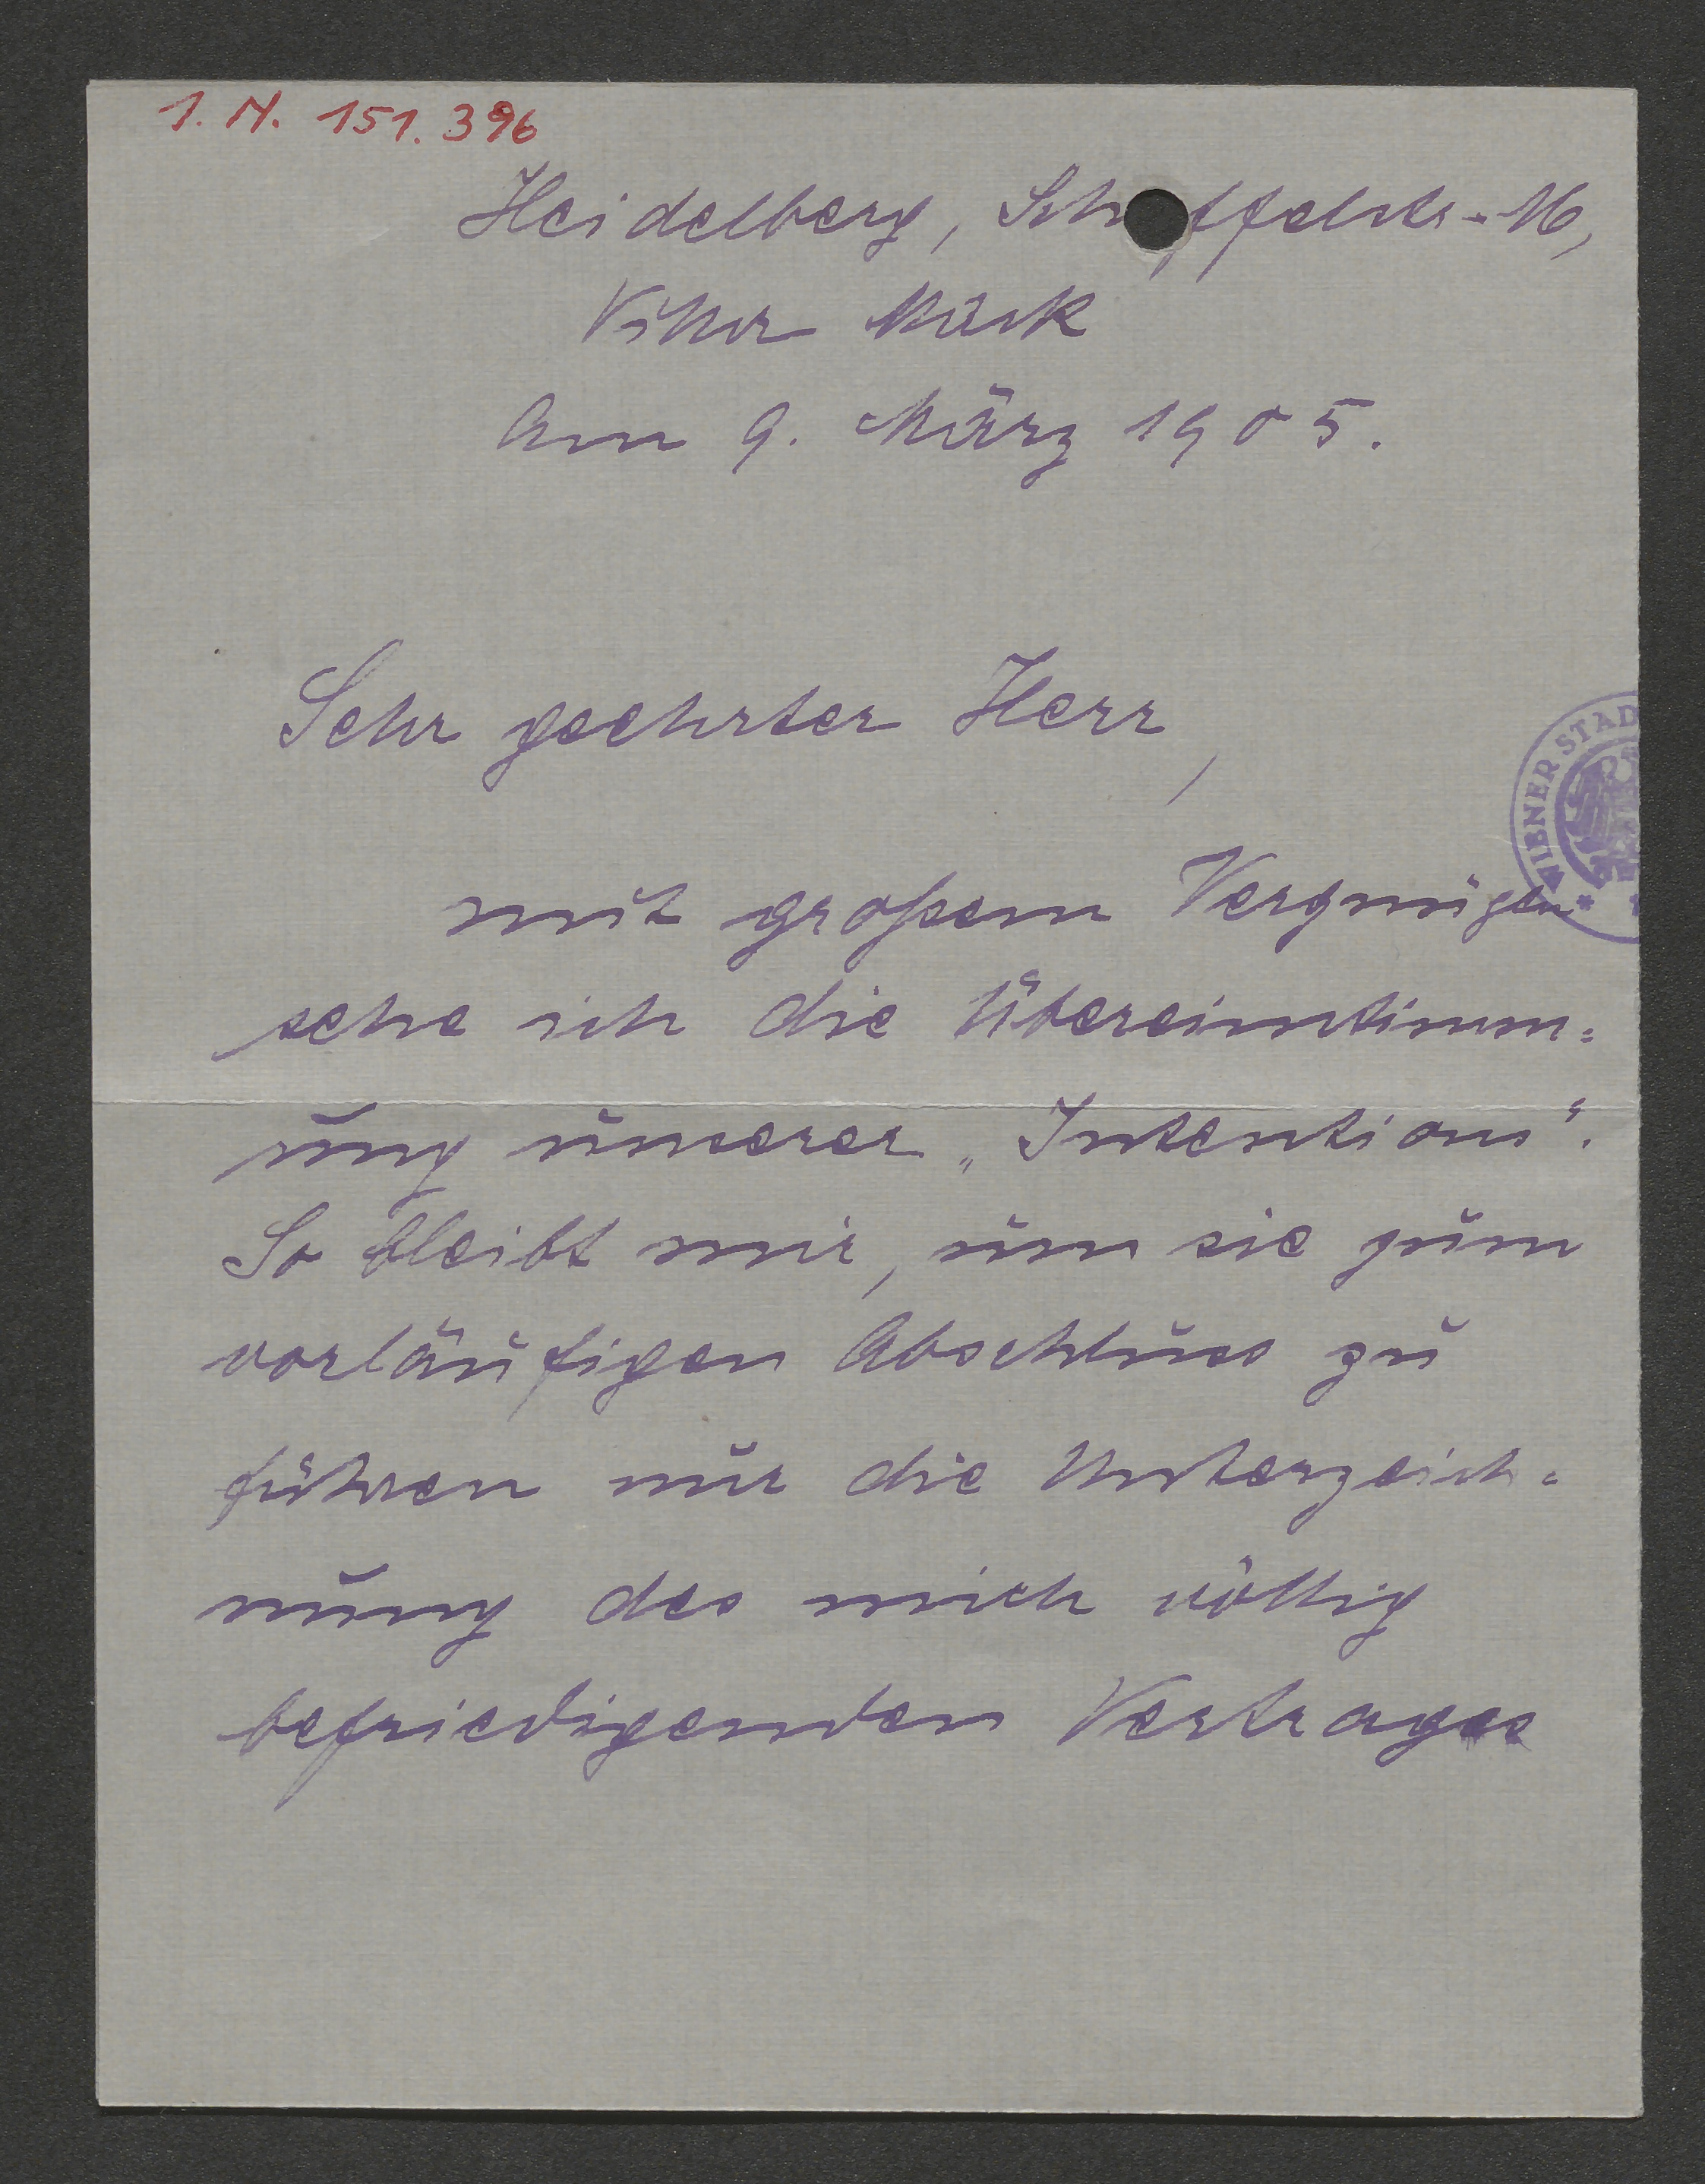 I. N. 151.396
Heidelberg, Scheffelstr. 16,
am 9. März 1905.
Sehr geehrter Herr,
WIENER STAD
mit großem Vergnügen
sehe ich die Übereinstimm=
ung unserer „Intentions“.
So bleibt mir, um sie zum
vorläufigen Abschluss zu
führen nur die Unterzeich=
nung des mich völlig
befriedigenden Vertrages